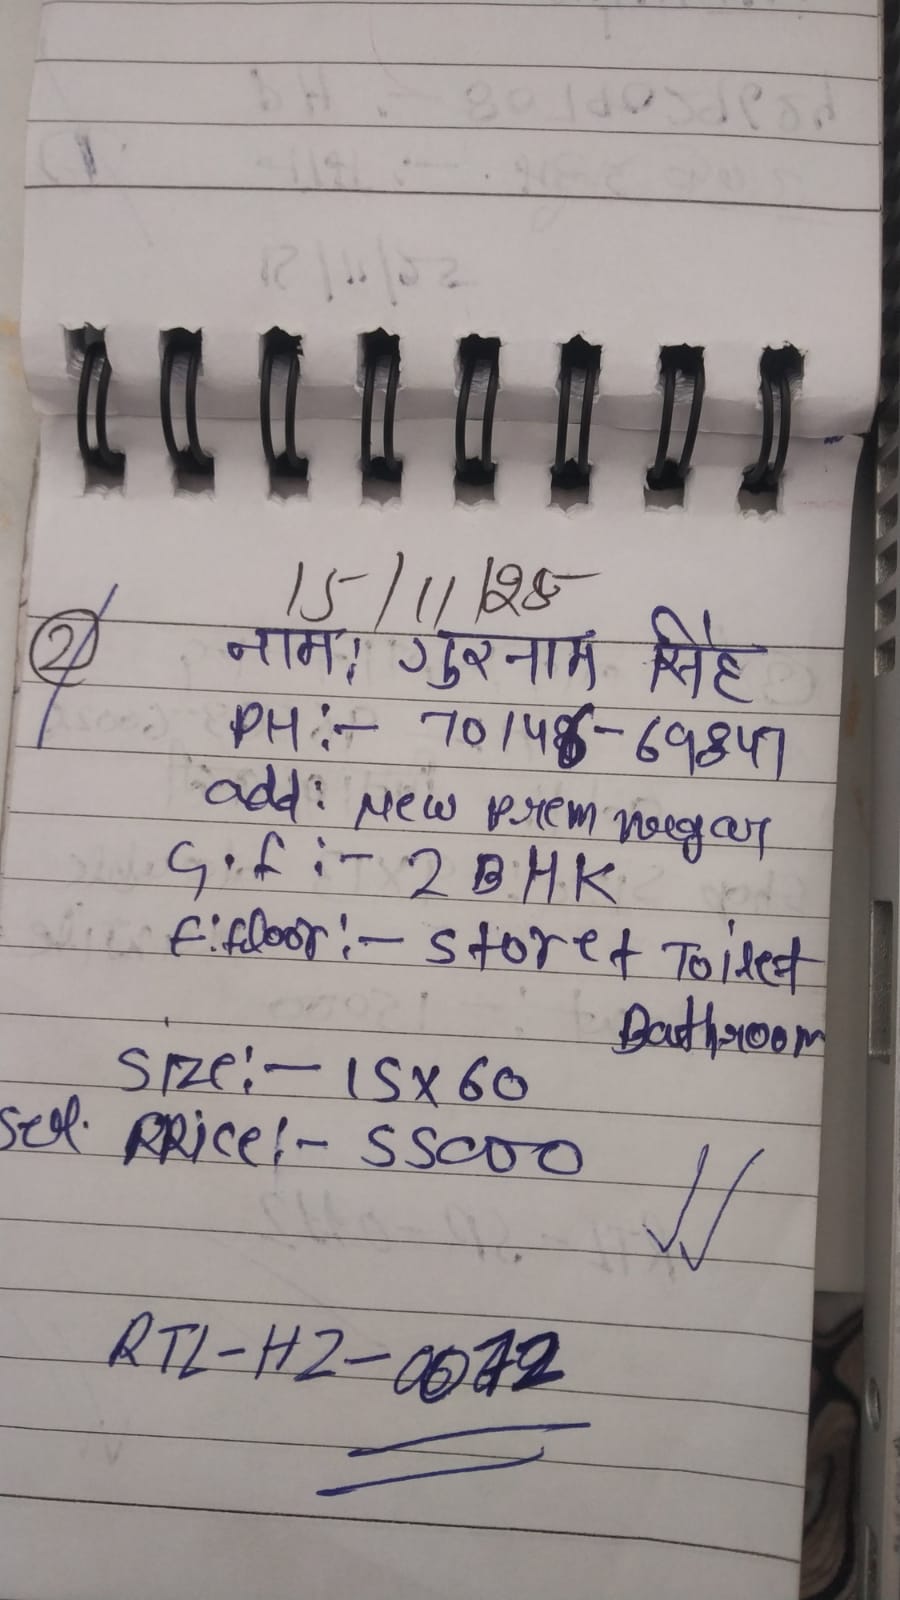 15/11/25
② नाम: गुरनाम सिंह
PH:- 70148-69847
add: New Prem nagar
G.f:- 2 BHK
F:floor:- Store+ Toilet
Bathroom
Size:- 15x60
Sel. PRice:- 55000
RTL-HZ-0072